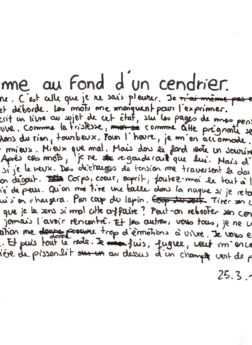 me au fond d'un cendrier.
ne. C'est celle que je ne sais pleurer. Je n'ai même pas
et déborde. Les mots me manquent pour l'exprimer.
crit un livre au sujet de cet état, sur les pages de mes pens
uve. Comme la tristesse, comme cette prégnante se
ns du rien, tourbeux. Pour l'heure, je m'en accommode.
mieux. Mieux que mal. Mais dans le fond reste un sourire
Après ces mots, je ne regarderait que lui. Mais d
si je le veux. Des décharges de tension me traversent le dos
on dégoût. Corps, coeur, esprit, foutez-moi le tout à l
ie de peu. Qu'on me tire une balle dans la nuque si je ret
ui s'en chargera. Pan coup du lapin. Tirer son c
que je sens si mal cette affaire ? Peut-on rebooter son ce
jamais l'avoir rencontré. Et les autres, vous tous, je ne
tion me donne trop d'émotions à vivre. Je vous e
. Et puis tout le reste. Je fuis, fugue, veut m'once
ière de pissenlit au dessus d'un champs vert de p
25.3.